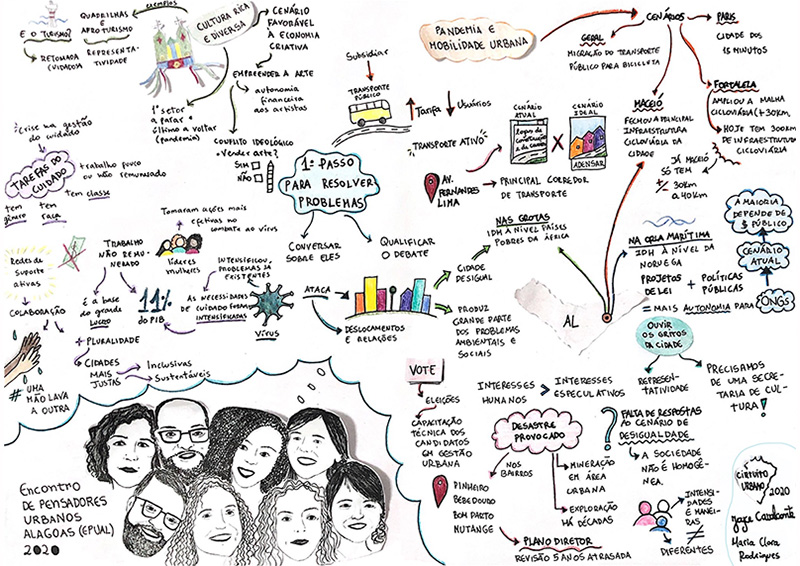 EXEMPLOS
E O TURISMO?
RETOMADA
CUIDADOSA
QUADRILHAS
E AFROTURISMO
REPRESENTA-
TIVIDADE
CULTURA RICA
E DIVERSA
CENÁRIO
FAVORÁVEL
À ECONOMIA
CRIATIVA
EMPREENDER A ARTE
autonomia
financeira
aos artistas
1º setor
a parar +
último a voltar
(pandemia)
CONFLITO IDEOLÓGICO
• Vender arte?
SIM
NÃO
Crise na gestão
do cuidado
TAREFAS DO
CUIDADO
trabalho pouco
ou não remunerado
tem classe
tem
raça
tem
gênero
1º PASSO
PARA RESOLVER
PROBLEMAS
CONVERSAR
SOBRE ELES
QUALIFICAR O
DEBATE
Subsidiar
TRANSPORTE
PÚBLICO
Tarifa
Usuários
PANDEMIA E
MOBILIDADE URBANA
CENÁRIOS
GERAL
MIGRAÇÃO DO TRANSPORTE
PÚBLICO PARA BICICLETA
PARIS
CIDADE DOS
15 MINUTOS
FORTALEZA
AMPLIOU A MALHA
CICLOVIÁRIA (+30KM)
HOJE TEM 300KM
DE INFRAESTRUTURA
CICLOVIÁRIA
MACEIÓ
FECHOU A PRINCIPAL
INFRAESTRUTURA
CICLOVIÁRIA DA
CIDADE
JÁ MACEIÓ
SÓ TEM
+/- 30KM
A 40KM
TRANSPORTE ATIVO
CENÁRIO
ATUAL
X
CENÁRIO
IDEAL
ADENSAR
AV.
FERNANDES
LIMA
PRINCIPAL CORREDOR
DE TRANSPORTE
NAS GROTAS
IDH A NÍVEL PAÍSES
POBRES DA ÁFRICA
NA ORLA MARÍTIMA
IDH À NÍVEL DA
NORUEGA
PROJETOS
DE LEI
+
POLÍTICAS
PÚBLICAS
= MAIS AUTONOMIA PARA
ONGS
CENÁRIO
ATUAL
A MAIORIA
DEPENDE DE
$ PÚBLICO
AL
Redes de
suporte
ativas
COLABORAÇÃO
# UMA
MÃO LAVA
A OUTRA
TRABALHO
NÃO REMU-
NERADO
É a base
do grande
LUCRO
11%
DO PIB
Tomaram ações mais
efetivas no
combate ao vírus
líderes
mulheres
Intensificou
PROBLEMAS JÁ
EXISTENTES
AS NECESSIDADES
DE CUIDADO FORAM
INTENSIFICADAS
VÍRUS
ATACA
DESLOCAMENTOS
E RELAÇÕES
CIDADE
DESIGUAL
PRODUZ
GRANDE PARTE
DOS PROBLEMAS
AMBIENTAIS E
SOCIAIS
+ PLURALIDADE
CIDADES
MAIS
JUSTAS
Inclusivas
Sustentáveis
OUVIR
OS GRITOS
DA CIDADE
REPRESEN-
TATIVIDADE
PRECISAMOS
DE UMA SECRE-
TARIA DE CUL-
TURA!
VOTE
ELEIÇÕES
CAPACITAÇÃO
TÉCNICA DOS
CANDIDATOS
EM GESTÃO
URBANA
INTERESSES
HUMANOS
>
INTERESSES
ESPECULATIVOS
DESASTRE
PROVOCADO
NOS
BAIRROS
PINHEIRO
BEBEDOURO
BOM PARTO
MUTANGE
MINERAÇÃO
EM ÁREA
URBANA
EXPLORAÇÃO
HÁ DÉCADAS
PLANO DIRETOR
REVISÃO 5 ANOS ATRASADA
?
FALTA DE RESPOSTAS
AO CENÁRIO DE
DESIGUALDADE
A SOCIEDADE
NÃO É HOMOGÊ-
NEA.
INTENSI-
DADES
E MANEI-
RAS
≠
DIFERENTES
ENCONTRO
DE PENSADORES
URBANOS
ALAGOAS (EPUAL)
2020
CIRCUITO
URBANO
2020
Cavalcante
Maria Clara
Rodrigues